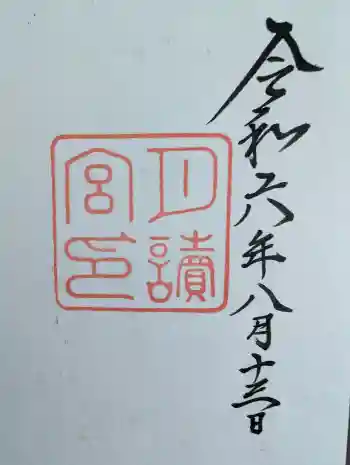 令和六年八月十三日
月讀
宮印